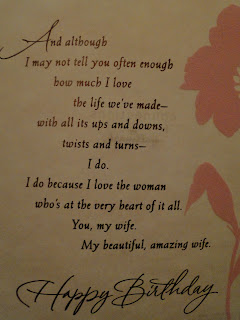 And although
I may not tell you often enough
how much I love
the life we've made—
with all its ups and downs,
twists and turns—
I do.
I do because I love the woman
who's at the very heart of it all.
You, my wife.
My beautiful, amazing wife.
Happy Birthday